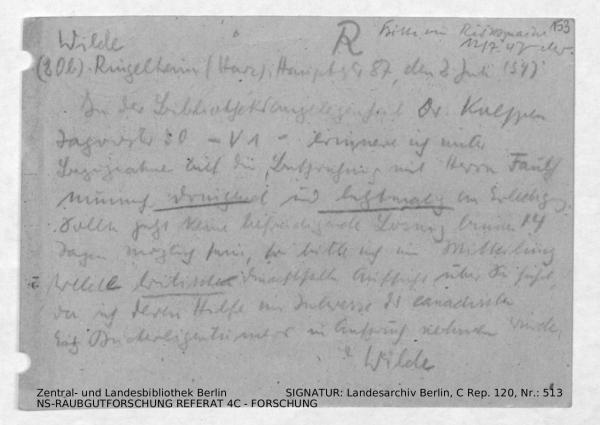 Wilde
R
Bitte um Rücksprache
153
12/7. 47
(20b) Ringelheim (Harz), Hauptstr 87, den 2 Juli 1947
In der Bibliotheksangelegenheit Dr.
30 - V 1 - erinnere ich unter
Bezugnahme auf die mit Herrn
nunmehr dringend und letztmalig um Erledigung.
Sollte jetzt keine befriedigende Lösung binnen 14
Tagen möglich sein, so bitte ich um Mitteilung
welche britische Aufsicht über Sie führt,
da ich deren Hilfe im Interesse des
in Anspruch nehmen würde.
Wilde
Zentral- und Landesbibliothek Berlin
SIGNATUR: Landesarchiv Berlin, C Rep. 120, Nr.: 513
NS-RAUBGUTFORSCHUNG REFERAT 4C - FORSCHUNG